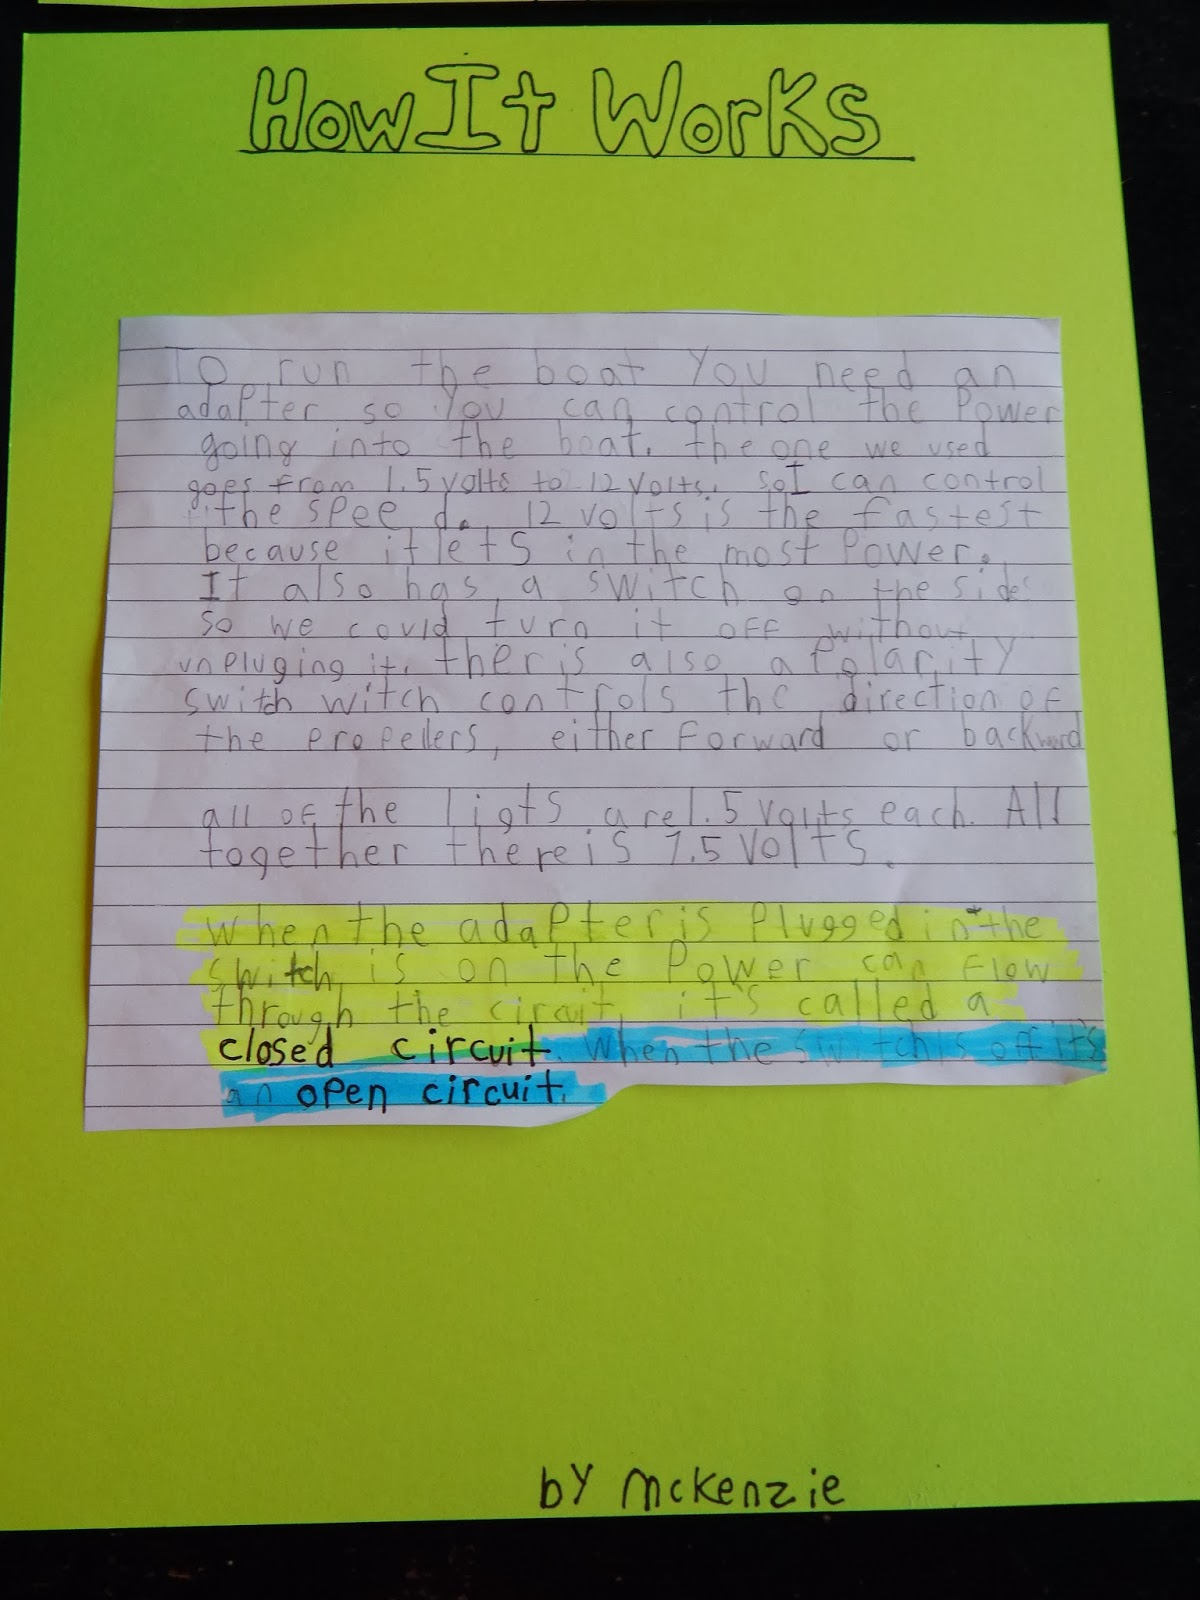 How It Works
To run the boat you need an
adapter so you can control the Power
going into the boat. the one we used
goes from 1.5 volts to 12 volts. so I can control
the speed. 12 volts is the fastest
because it lets in the most Power.
It also has a switch on the side
so we could turn it off without
unpluging it. ther is also a Polarity
switch witch controls the direction of
the propellers, either forward or backward
all of the ligts are 1.5 volts each. All
together there is 7.5 volts.
When the adapter is plugged in the
switch is on the Power can flow
through the circuit, it's called a
closed circuit. When the switch is off it's
an open circuit.
by mckenzie